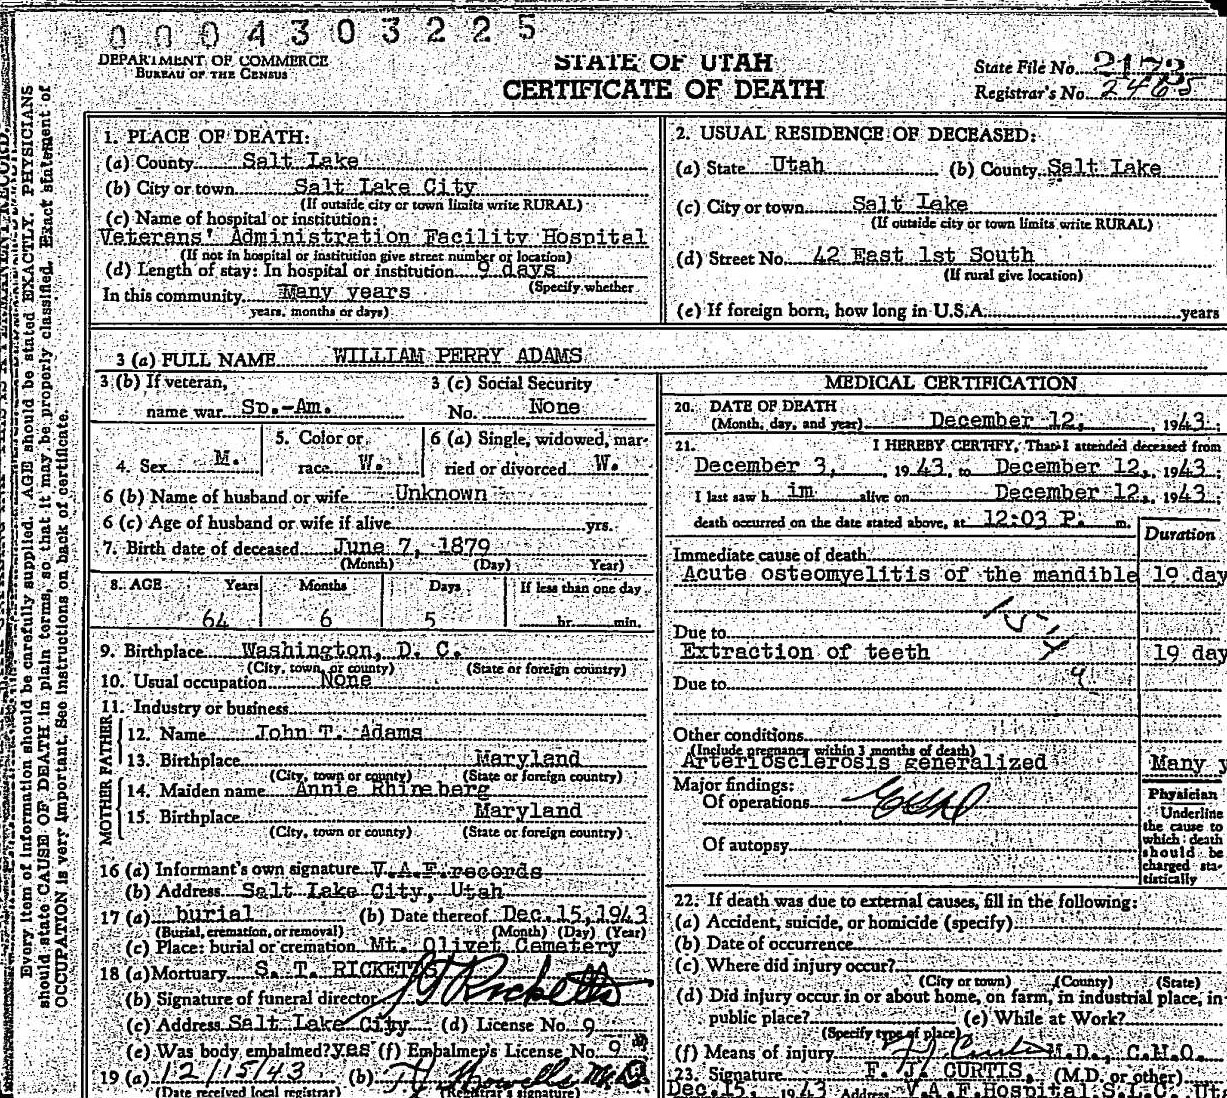 0004303225
DEPARTMENT OF COMMERCE
BUREAU OF THE CENSUS
STATE OF UTAH
CERTIFICATE OF DEATH
State File No. 2173
Registrar's No. 2465
Every item of information should be carefully supplied. AGE should be stated EXACTLY. PHYSICIANS
should state CAUSE OF DEATH in plain terms, so that it may be properly classified. Exact statement of
OCCUPATION is very important. See instructions on back of certificate.
1. PLACE OF DEATH:
(a) County Salt Lake
(b) City or town Salt Lake City
(If outside city or town limits write RURAL)
(c) Name of hospital or institution:
Veterans' Administration Facility Hospital
(If not in hospital or institution give street number or location)
(d) Length of stay: In hospital or institution 9 days
(Specify whether
In this community Many years
years, months or days)
2. USUAL RESIDENCE OF DECEASED:
(a) State Utah (b) County Salt Lake
(c) City or town Salt Lake
(If outside city or town limits write RURAL)
(d) Street No. 42 East 1st South
(If rural give location)
(e) If foreign born, how long in U.S.A. years
3 (a) FULL NAME WILLIAM PERRY ADAMS
3 (b) If veteran,
name war Sp.-Am.
3 (c) Social Security
No. None
4. Sex M.
5. Color or
race W.
6 (a) Single, widowed, mar-
ried or divorced W.
6 (b) Name of husband or wife Unknown
6 (c) Age of husband or wife if alive yrs.
7. Birth date of deceased June 7, 1879
(Month) (Day) Year)
8. AGE Years Months Days If less than one day
64 6 5 hr. min.
9. Birthplace Washington, D. C.
(City, town, or county) (State or foreign country)
10. Usual occupation None
11. Industry or business
FATHER
12. Name John T. Adams
13. Birthplace Maryland
(City, town or county) (State or foreign country)
MOTHER
14. Maiden name Annie Rhineberg
15. Birthplace Maryland
(City, town or county) (State or foreign country)
16 (a) Informant's own signature V.A.F. records
(b) Address Salt Lake City, Utah
17 (a) burial (b) Date thereof Dec. 15, 1943
(Burial, cremation, or removal) (Month) (Day) (Year)
(c) Place: burial or cremation Mt. Olivet Cemetery
18 (a) Mortuary S. T. RICKETTS
(b) Signature of funeral director S T Ricketts
(c) Address Salt Lake City (d) License No. 9
(e) Was body embalmed? yes (f) Embalmer's License No. 9
19 (a) 12/15/43 (b)
(Date received local registrar) (Registrar's signature)
MEDICAL CERTIFICATION
20. DATE OF DEATH
(Month, day, and year) December 12, 1943
21. I HEREBY CERTIFY, That I attended deceased from
December 3, 1943 to December 12, 1943
I last saw him alive on December 12, 1943
death occurred on the date stated above, at 12:03 P. m.
Duration
Immediate cause of death
Acute osteomyelitis of the mandible 19 day
Due to
Extraction of teeth 19 day
Due to
Other conditions
(Include pregnancy within 3 months of death)
Arteriosclerosis generalized Many y
Major findings:
Of operations
Of autopsy
Physician
Underline
the cause to
which death
should be
charged sta-
tistically
22. If death was due to external causes, fill in the following:
(a) Accident, suicide, or homicide (specify)
(b) Date of occurrence
(c) Where did injury occur?
(City or town) (County) (State)
(d) Did injury occur in or about home, on farm, in industrial place, in
public place? (e) While at Work?
(Specify type of place)
(f) Means of injury M.D., C.M.O.
23. Signature F. J. CURTIS, (M.D. or other)
Dec. 15, 1943 Address V.A.F. Hospital, S.L.C., Uta